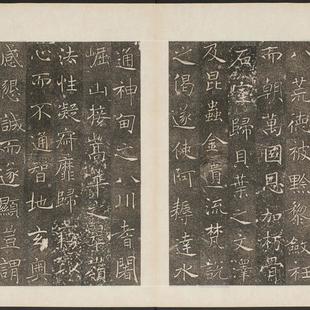 八荒德被黔黎斂衽
而朝萬國恩加朽骨
石室歸貝葉之文澤
及昆蟲金匱流梵說
之偈遂使阿耨達水
通神甸之八川耆闍
崛山接嵩華之翠嶺
法性凝寂靡歸
心而不通智地玄奧
感懇誠而遂顯豈謂